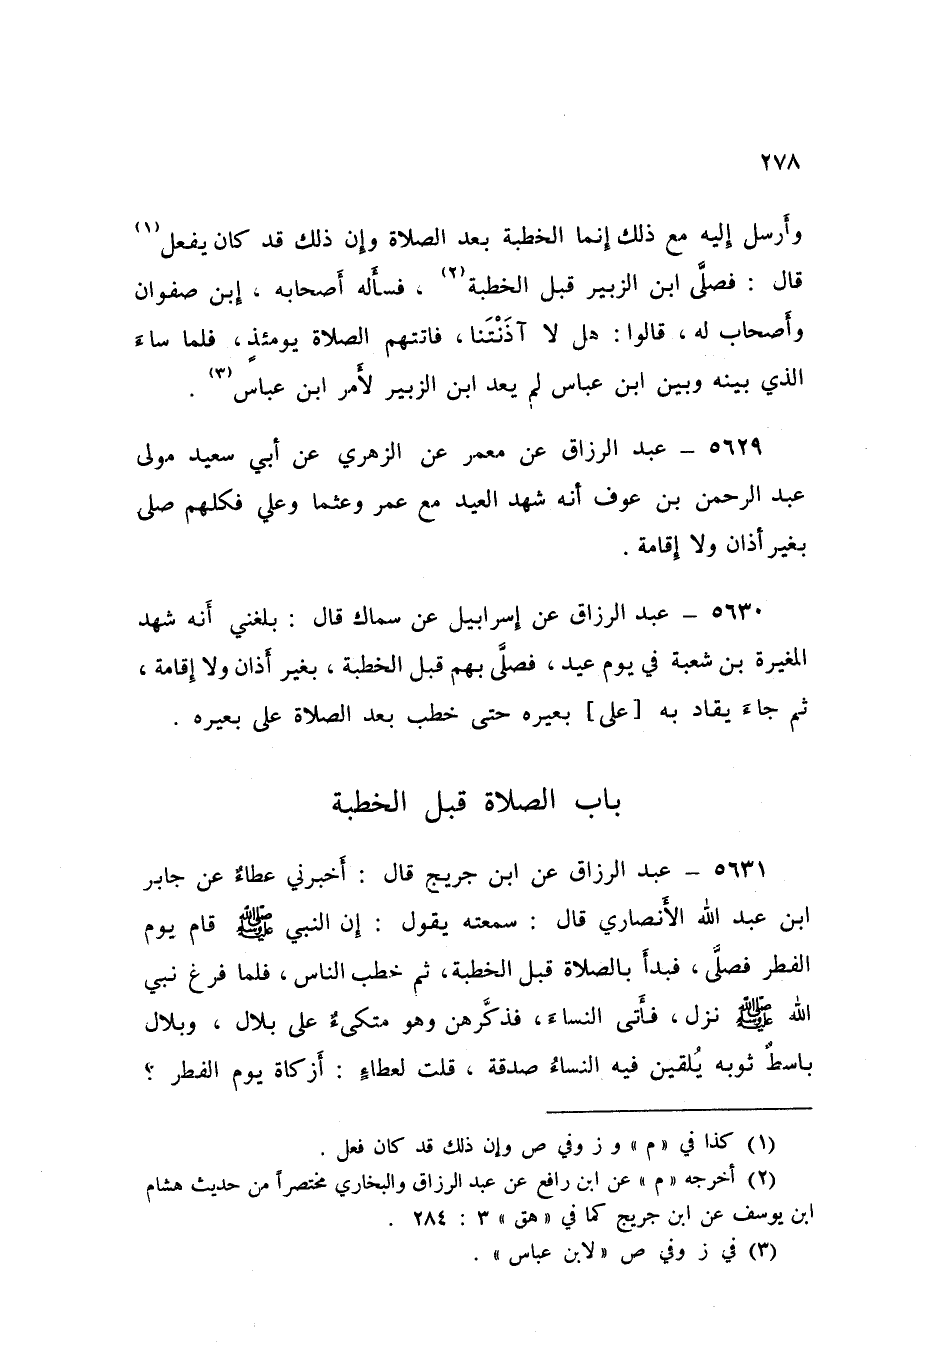 ٢٧٨
وأرسل إليه مع ذلك إنما الخطبة بعد الصلاة وإن ذلك قد كان يفعل(١)
قال : فصلَّى ابن الزبير قبل الخطبة(٢) ، فسأله أصحابه ، إبن صفوان
وأصحاب له ، قالوا : هل لا آذَنْتَنا ، فاتتهم الصلاة يومئذٍ ، فلما ساءَ
الذي بينه وبين ابن عباس لم يعد ابن الزبير لأمر ابن عباس(٣) .
٥٦٢٩ – عبد الرزاق عن معمر عن الزهري عن أبي سعيد مولى
عبد الرحمن بن عوف أنه شهد العيد مع عمر وعثما وعلي فكلهم صلى
بغير أذان ولا إقامة .
٥٦٣٠ – عبد الرزاق عن إسرابيل عن سماك قال : بلغني أنه شهد
المغيرة بن شعبة في يوم عيد ، فصلَّى بهم قبل الخطبة ، بغير أذان ولا إقامة ،
ثم جاءَ يقاد به [على] بعيره حتى خطب بعد الصلاة على بعيره .
باب الصلاة قبل الخطبة
٥٦٣١ – عبد الرزاق عن ابن جريج قال : أخبرني عطاءٌ عن جابر
ابن عبد الله الأنصاري قال : سمعته يقول : إن النبي ﷺ قام يوم
الفطر فصلَّى ، فبدأ بالصلاة قبل الخطبة ، ثم خطب الناس ، فلما فرغ نبي
الله ﷺ نزل ، فأتى النساءَ ، فذكَّرهن وهو متكىءٌ على بلال ، وبلال
باسطٌ ثوبه يُلقين فيه النساءُ صدقة ، قلت لعطاءٍ : أزكاة يوم الفطر ؟
(١) كذا في «م» و ز وفي ص وإن ذلك قد كان فعل .
(٢) أخرجه «م» عن ابن رافع عن عبد الرزاق والبخاري مختصراً من حديث هشام
ابن يوسف عن ابن جريج كما في «هق» ٣ : ٢٨٤ .
(٣) في ز وفي ص «لابن عباس» .